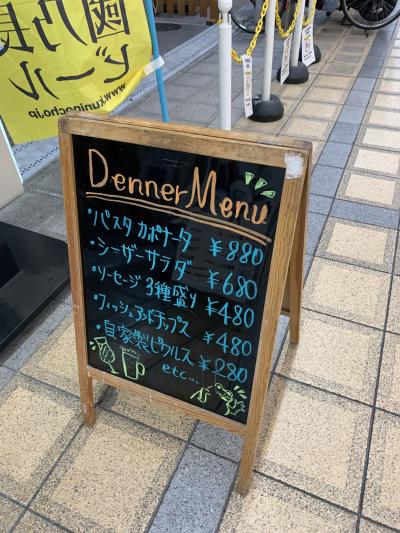 國乃長
ビール
www.kuninocho.jp
Denner Menu
・パスタ カポナータ ¥880
・シーザーサラダ ¥680
・ソーセージ3種盛り ¥480
・フィッシュアンドチップス ¥480
・自家製ピクルス ¥280
etc...